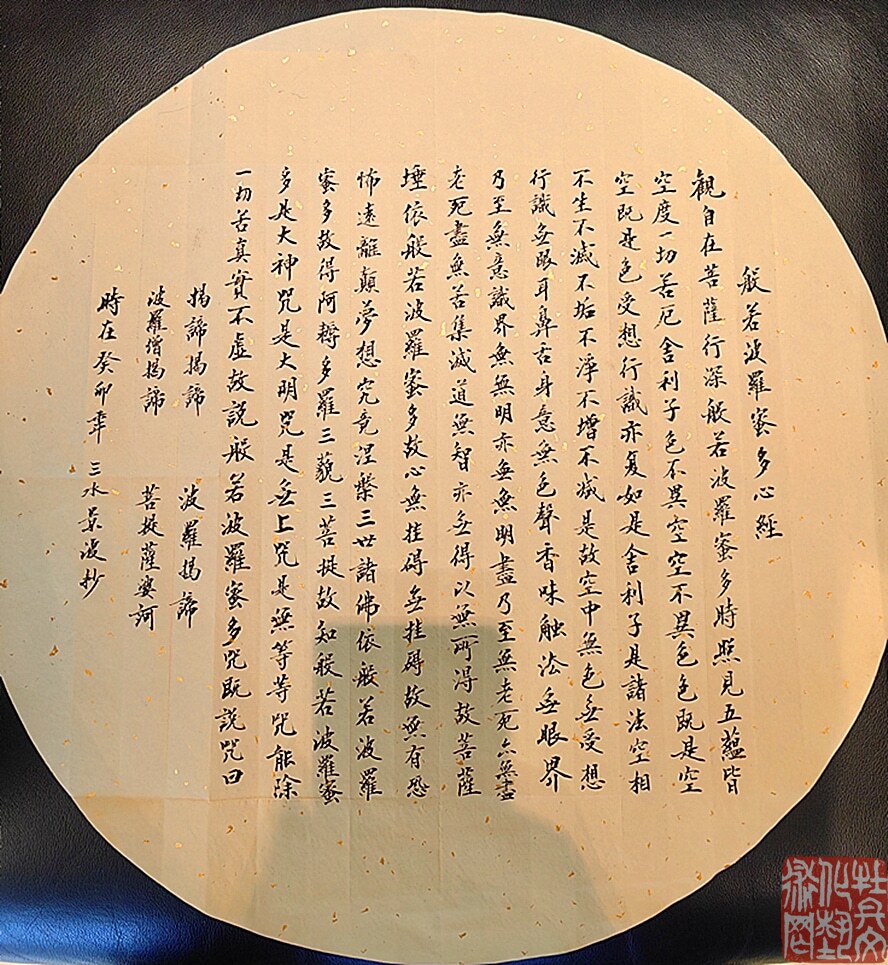 般若波羅蜜多心經
觀自在菩薩行深般若波羅蜜多時照見五蘊皆
空度一切苦厄舍利子色不異空空不異色色既是空
空既是色受想行識亦复如是舍利子是諸法空相
不生不滅不垢不淨不增不減是故空中無色無受想
行識無眼耳鼻舌身意無色聲香味触法無眼界
乃至無意識界無無明亦無無明盡乃至無老死亦無盡
老死盡無苦集滅道無智亦無得以無所得故菩薩
埵依般若波羅蜜多故心無挂碍無挂碍故無有恐
怖遠離顛夢想究竟涅槃三世諸佛依般若波羅
蜜多故得阿耨多羅三藐三菩提故知般若波羅蜜
多是大神咒是大明咒是無上咒是無等等咒能除
一切苦真實不虛故說般若波羅蜜多咒既說咒曰
揭諦揭諦 波羅揭諦
波羅僧揭諦 菩提薩婆訶
時在癸卯年 三水景波抄
牡丹文化藝術网